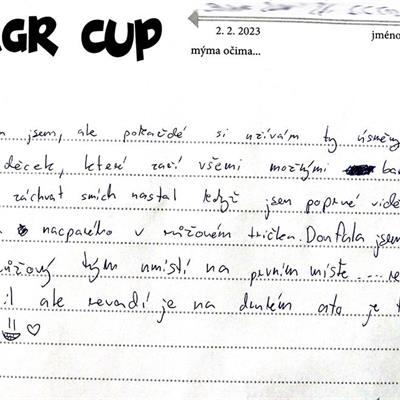 GR CUP
2. 2. 2023
jméno
mýma očima...
jsem, ale pokaždé si užívám ty úsměvy
děcek, které září všemi možnými bar
záchvat smích nastal když jsem poprvé vidě
a nacpaného v růžovém tričku. Doufala jsem
růžový tým umístí na prvním místě.... ne
il ale nevadí je na druhém a to je